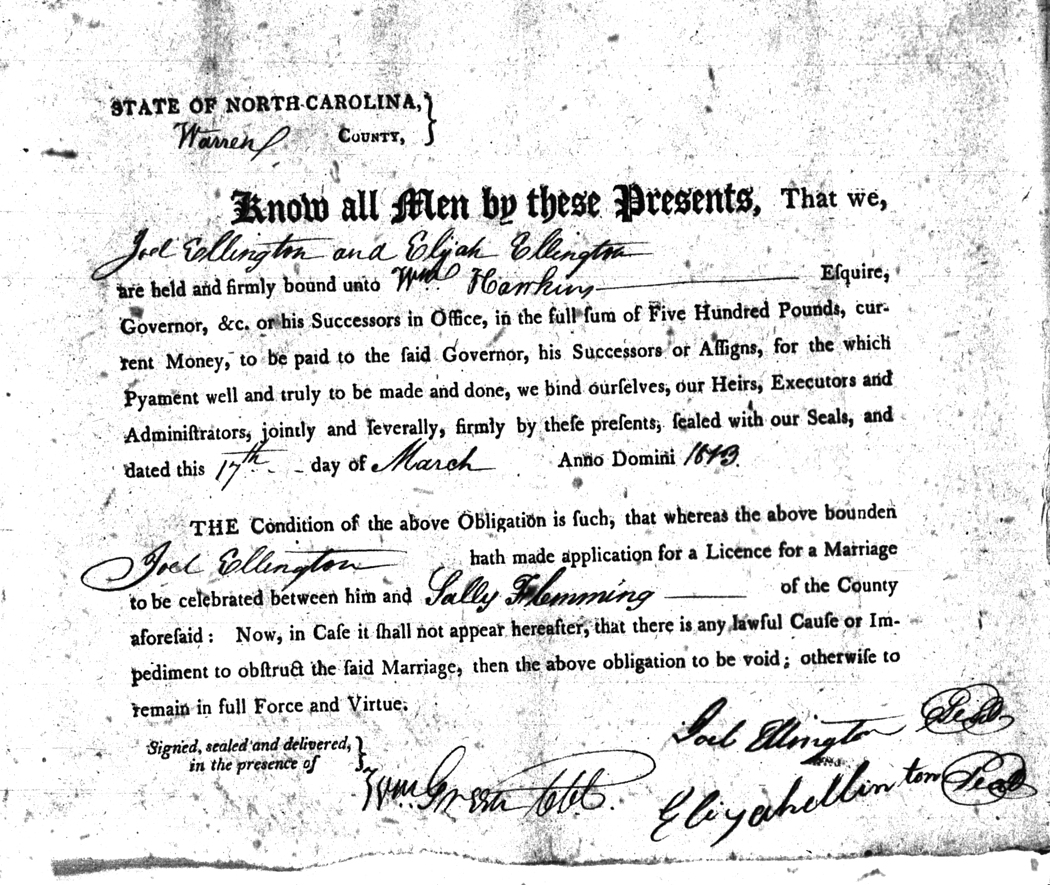 STATE OF NORTH-CAROLINA,}
Warren COUNTY,
Know all Men by these Presents, That we,
Joel Ellington and Elijah Ellington
are held and firmly bound unto Wm Hawkins Eſquire,
Governor, &c. or his Successors in Office, in the full ſum of Five Hundred Pounds, cur-
rent Money, to be paid to the ſaid Governor, his Successors or Aſſigns, for the which
Pyament well and truly to be made and done, we bind ourſelves, our Heirs, Executors and
Adminiſtrators, jointly and ſeverally, firmly by theſe preſents, ſealed with our Seals, and
dated this 17th day of March Anno Domini 1813.
THE Condition of the above Obligation is ſuch, that whereas the above bounden
Joel Ellington hath made application for a Licence for a Marriage
to be celebrated between him and Sally Flemming of the County
aforeſaid : Now, in Caſe it ſhall not appear hereafter, that there is any lawful Cauſe or Im-
pediment to obſtruct the ſaid Marriage, then the above obligation to be void ; otherwiſe to
remain in full Force and Virtue.
Signed, sealed and delivered,}
in the presence of
Joel Ellington Seal
Wm. Green
Elizahellinton Seal